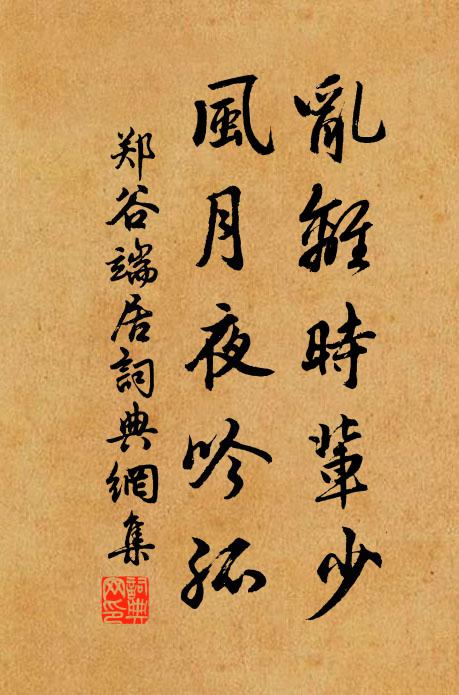 亂離時輩少
風月夜吟孤
郑谷端居詞典網集
詞典網印